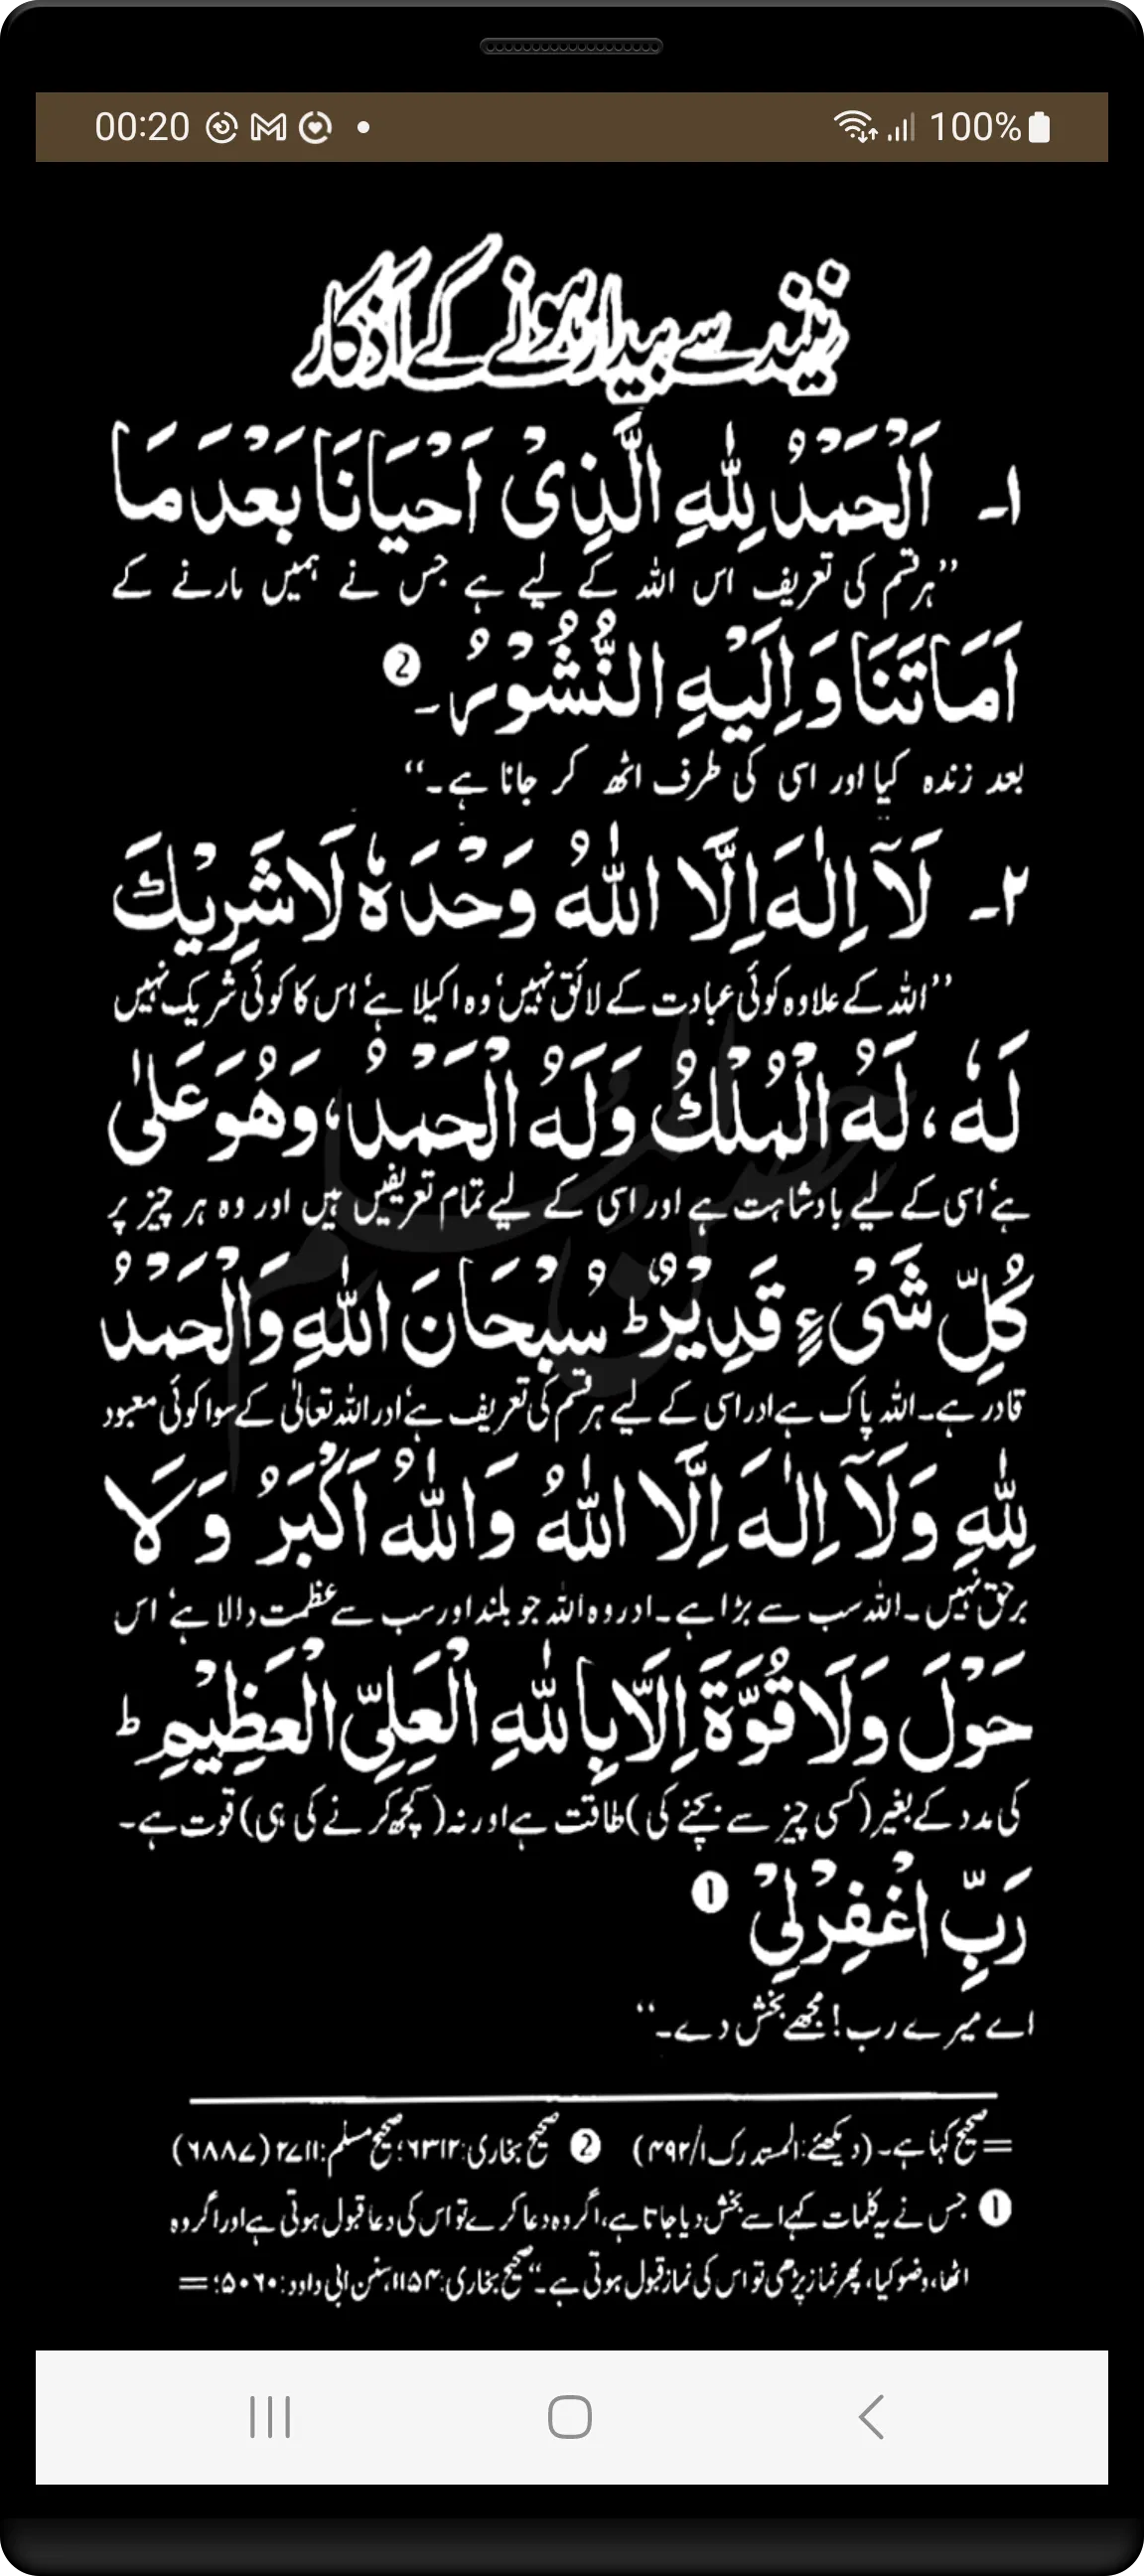 00:20 100%
نیند سے بیدار ہونے کے اذکار
۱۔ اَلْحَمْدُ لِلّٰهِ الَّذِیْ اَحْیَانَا بَعْدَ مَا
’’ہر قسم کی تعریف اس اللہ کے لیے ہے جس نے ہمیں مارنے کے
اَمَاتَنَا وَاِلَیْهِ النُّشُوْرُ۔ ❷
بعد زندہ کیا اور اسی کی طرف اٹھ کر جانا ہے۔‘‘
۲۔ لَآ اِلٰهَ اِلَّا اللّٰهُ وَحْدَهٗ لَا شَرِیْكَ
’’اللہ کے علاوہ کوئی عبادت کے لائق نہیں‘ وہ اکیلا ہے‘ اس کا کوئی شریک نہیں
لَهٗ، لَهُ الْمُلْكُ وَلَهُ الْحَمْدُ، وَهُوَ عَلٰی
ہے‘ اسی کے لیے بادشاہت ہے اور اسی کے لیے تمام تعریفیں ہیں اور وہ ہر چیز پر
كُلِّ شَیْءٍ قَدِیْرٌ ؕ سُبْحَانَ اللّٰهِ وَالْحَمْدُ
قادر ہے۔ اللہ پاک ہے اور اسی کے لیے ہر قسم کی تعریف ہے‘ اور اللہ تعالیٰ کے سوا کوئی معبود
لِلّٰهِ وَلَآ اِلٰهَ اِلَّا اللّٰهُ وَاللّٰهُ اَكْبَرُ وَلَا
برحق نہیں۔ اللہ سب سے بڑا ہے۔ اور وہ اللہ جو بلند اور سب سے عظمت والا ہے‘ اس
حَوْلَ وَلَا قُوَّةَ اِلَّا بِاللّٰهِ الْعَلِیِّ الْعَظِیْمِ ؕ
کی مدد کے بغیر (کسی چیز سے بچنے کی) طاقت ہے اور نہ (کچھ کرنے کی ہی) قوت ہے۔
رَبِّ اغْفِرْلِیْ ❶
اے میرے رب! مجھے بخش دے۔‘‘
= صحیح کہا ہے۔ (دیکھئے: المستدرک ۱/۴۹۲) ❷ صحیح بخاری: ۶۳۱۲؛ صحیح مسلم: ۲۷۱۱ (۶۸۸۷)
❶ جس نے یہ کلمات کہے اسے بخش دیا جاتا ہے، اگر وہ دعا کرے تو اس کی دعا قبول ہوتی ہے اور اگر وہ
اٹھا، وضو کیا، پھر نماز پڑھی تو اس کی نماز قبول ہوتی ہے۔‘‘ صحیح بخاری: ۱۱۵۴، سنن ابی داود: ۵۰۶۰؛ =